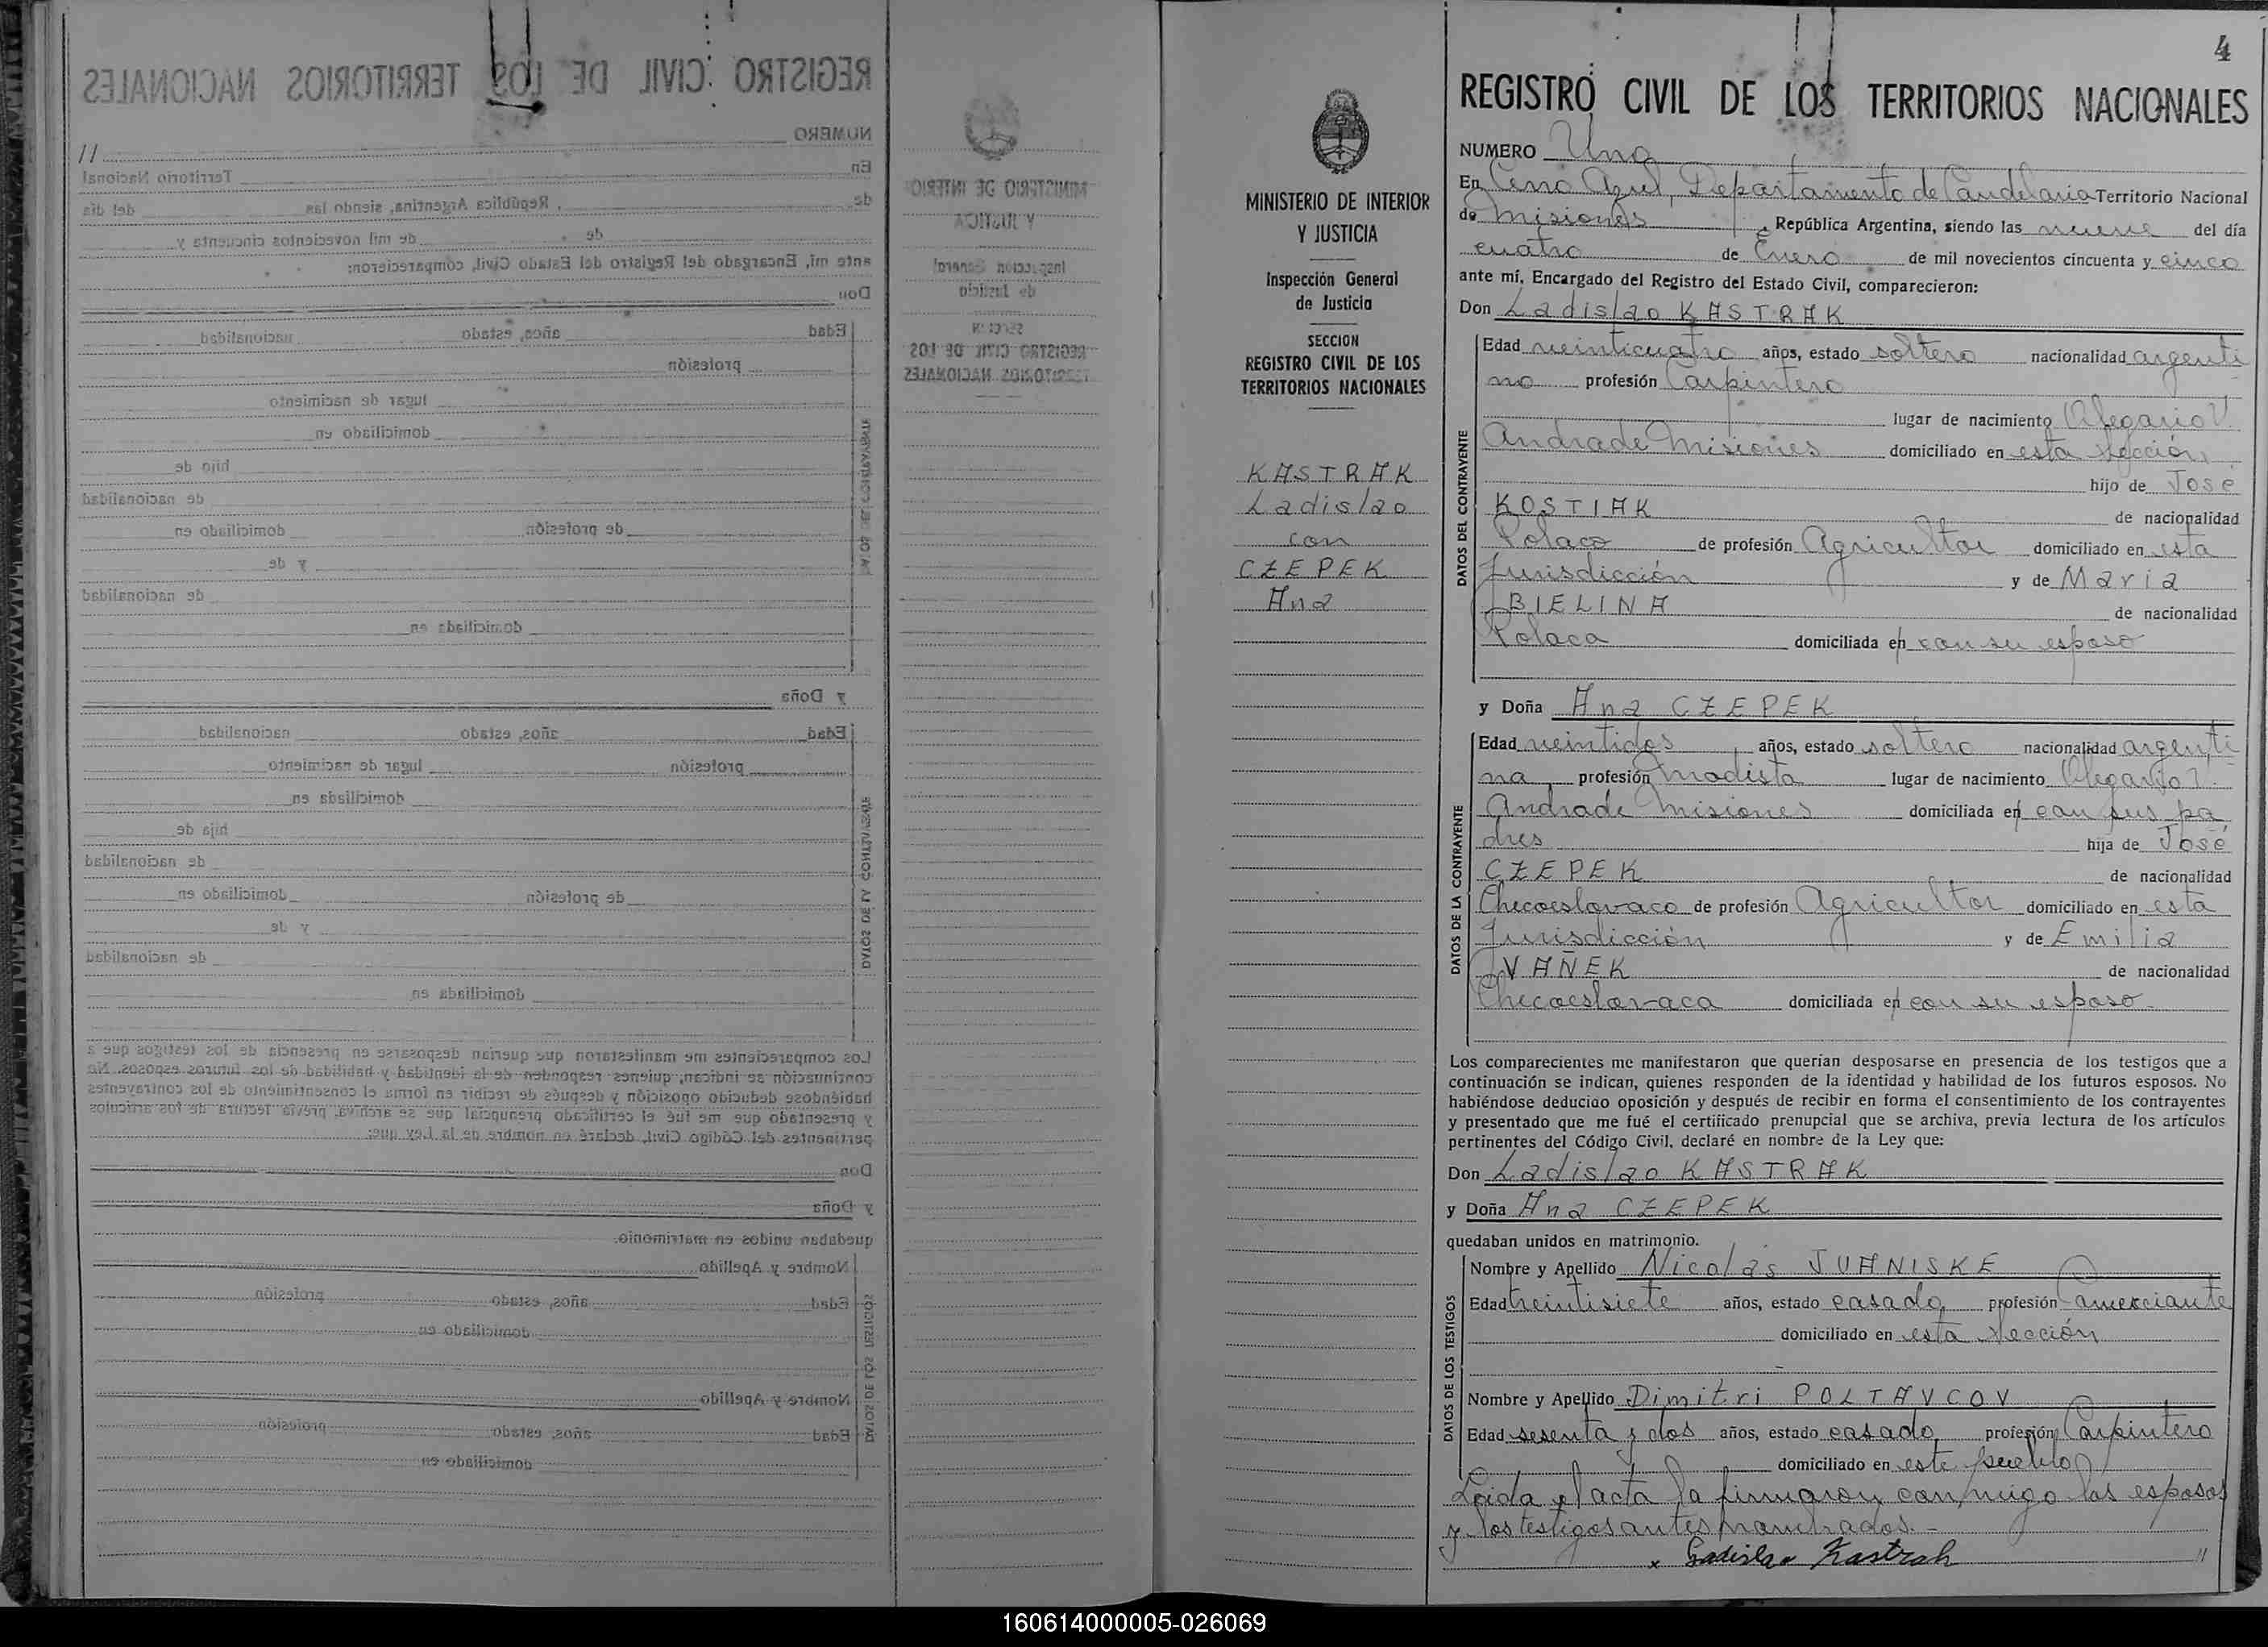 4
REGISTRO CIVIL DE LOS TERRITORIOS NACIONALES
MINISTERIO DE INTERIOR
Y JUSTICIA
Inspección General
de Justicia
SECCION
REGISTRO CIVIL DE LOS
TERRITORIOS NACIONALES
KASTRAK
Ladislao
con
CZEPEK
Ana
NUMERO Uno
En Cerro Azul, Departamento de Candelaria Territorio Nacional
de Misiones, República Argentina, siendo las nueve del día
cuatro de Enero de mil novecientos cincuenta y cinco
ante mí, Encargado del Registro del Estado Civil, comparecieron:
Don Ladislao KASTRAK
DATOS DEL CONTRAYENTE
Edad veinticuatro años, estado soltero nacionalidad argenti
no profesión Carpintero
lugar de nacimiento Olegario V.
Andrade Misiones domiciliado en esta sección
hijo de José
KOSTIAK de nacionalidad
Polaco de profesión Agricultor domiciliado en esta
Jurisdicción y de Maria
BIELINA de nacionalidad
Polaca domiciliada en con su esposo
y Doña Ana CZEPEK
DATOS DE LA CONTRAYENTE
Edad veintidos años, estado soltera nacionalidad argenti
na profesión modista lugar de nacimiento Olegario V.
Andrade Misiones domiciliada en con sus pa
dres hija de José
CZEPEK de nacionalidad
Checoeslovaco de profesión Agricultor domiciliado en esta
Jurisdicción y de Emilia
VAÑEK de nacionalidad
Checoeslovaca domiciliada en con su esposo
Los comparecientes me manifestaron que querían desposarse en presencia de los testigos que a
continuación se indican, quienes responden de la identidad y habilidad de los futuros esposos. No
habiéndose deducido oposición y después de recibir en forma el consentimiento de los contrayentes
y presentado que me fué el certificado prenupcial que se archiva, previa lectura de los artículos
pertinentes del Código Civil, declaré en nombre de la Ley que:
Don Ladislao KASTRAK
y Doña Ana CZEPEK
quedaban unidos en matrimonio.
DATOS DE LOS TESTIGOS
Nombre y Apellido Nicolás JUANISKE
Edad treintisiete años, estado casado profesión Comerciante
domiciliado en esta sección
Nombre y Apellido Dimitri POLTAVCOV
Edad sesenta y dos años, estado casado profesión Carpintero
domiciliado en este pueblo
Leida el acta la firmaron conmigo los esposos
y los testigos antes nombrados.-
x Ladislao Kastrak //
160614000005-026069